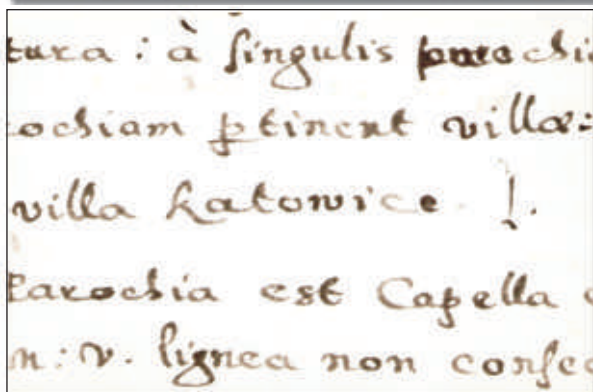 tura : à singulis parochi
ochiam ptinent villæ:
villa Katowice !.
Parochia est Capella
n: v. lignea non consec